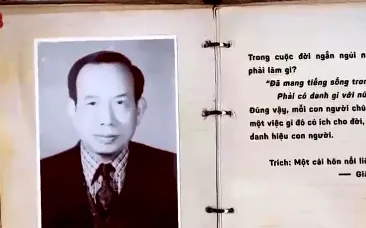 Trong cuộc đời ngắn ngủi n
phải làm gì?
"Đã mang tiếng sống tron
Phải có danh gì với nú
Đúng vậy, mỗi con người chú
một việc gì đó có ích cho đời,
danh hiệu con người.
Trích: Một cái hôn nồi liề
— Giá